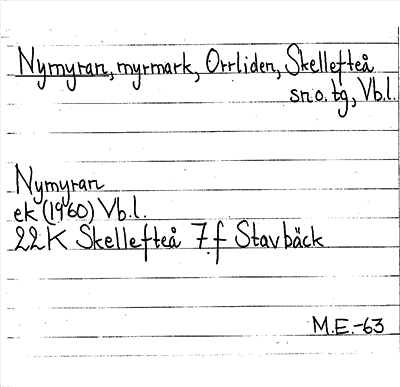 Nymyran, myrmark, Orrliden, Skellefteå
sn o. tg, Vb.l.
Nymyran
ek (1960) Vb.l.
22K Skellefteå 7 f Stavbäck
M.E.-63